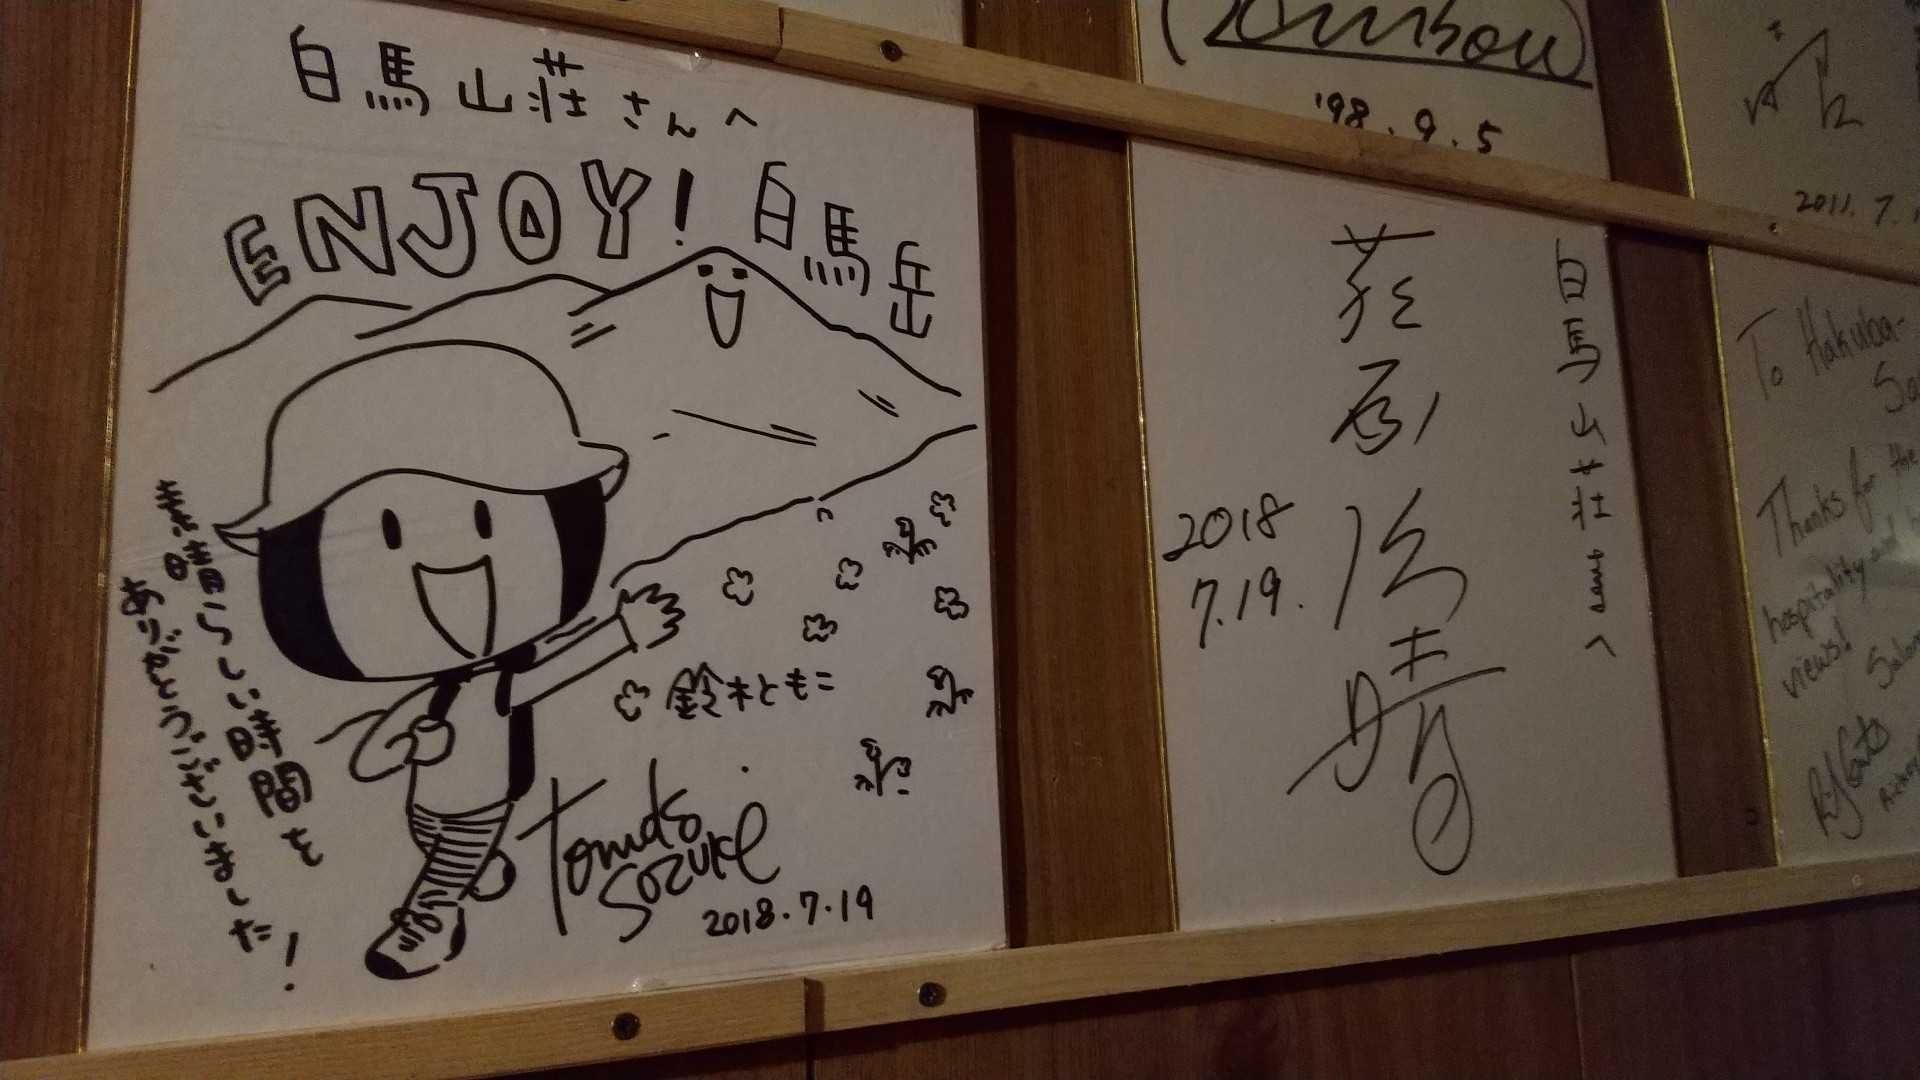 白馬山荘さんへ
ENJOY! 白馬岳
素晴らしい時間を
ありがとうございました!
鈴木ともこ
Tomoko
Suzuki
2018.7.19
'98.9.5
白馬山荘さんへ
萩原浩晴
2018
7.19.
2011.7.1
To Hakuba-
Thanks for the
hospitality and
views!